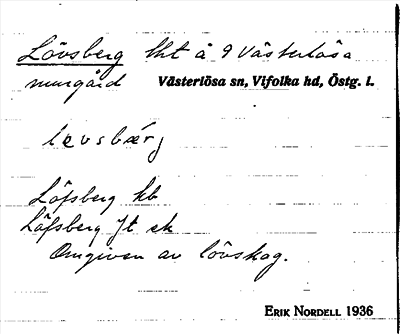 Lövsberg lht å 9 Västerlösa
Västerlösa sn, Vifolka hd, Östg. l.
lǫvsbærj
Löfsberg kb
Löfsberg Jt ek
Omgiven av lövskog.
ERIK NORDELL 1936